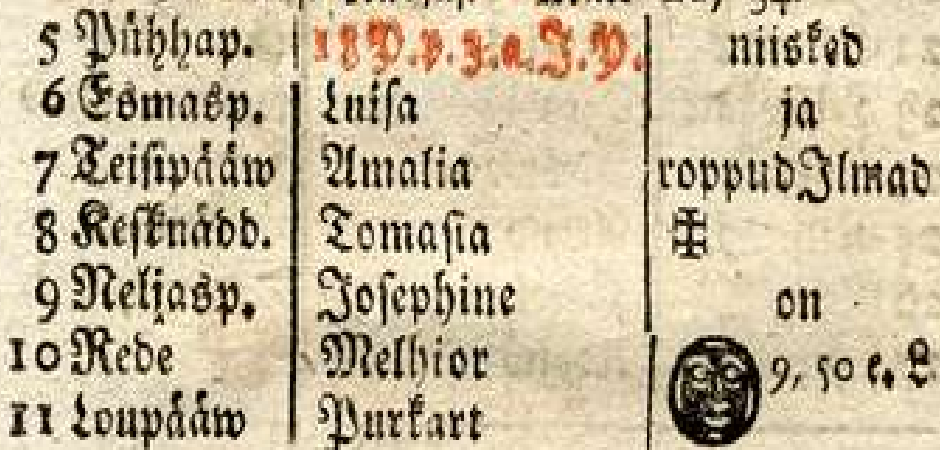 5 Pühhap. 18 P. p. 3. a. J. P. niisked
6 Esmasp. Luisa ja
7 Teisipääw Amalia roppud Ilmad
8 Kesknädd. Tomasia
9 Neljasp. Josephine on
10 Rede Melhior 9, 50 e. L
11 Loupääw Purkart